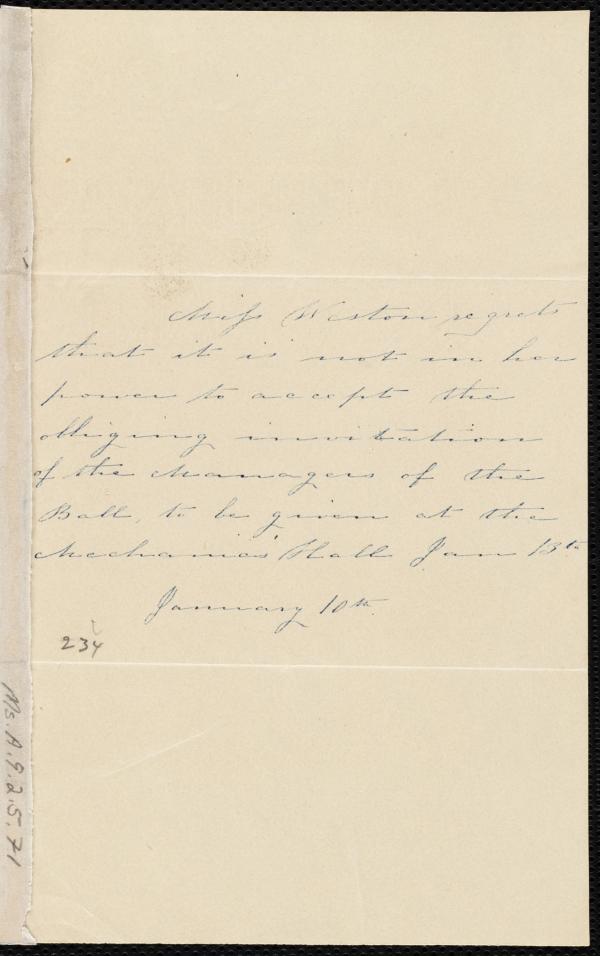 Miss Weston regrets
that it is not in her
power to accept the
obliging invitation
of the Managers of the
Ball, to be given at the
Mechanics' Hall Jan 13th
January 10th.
234
Ms. A. 9. 2. 5. 71